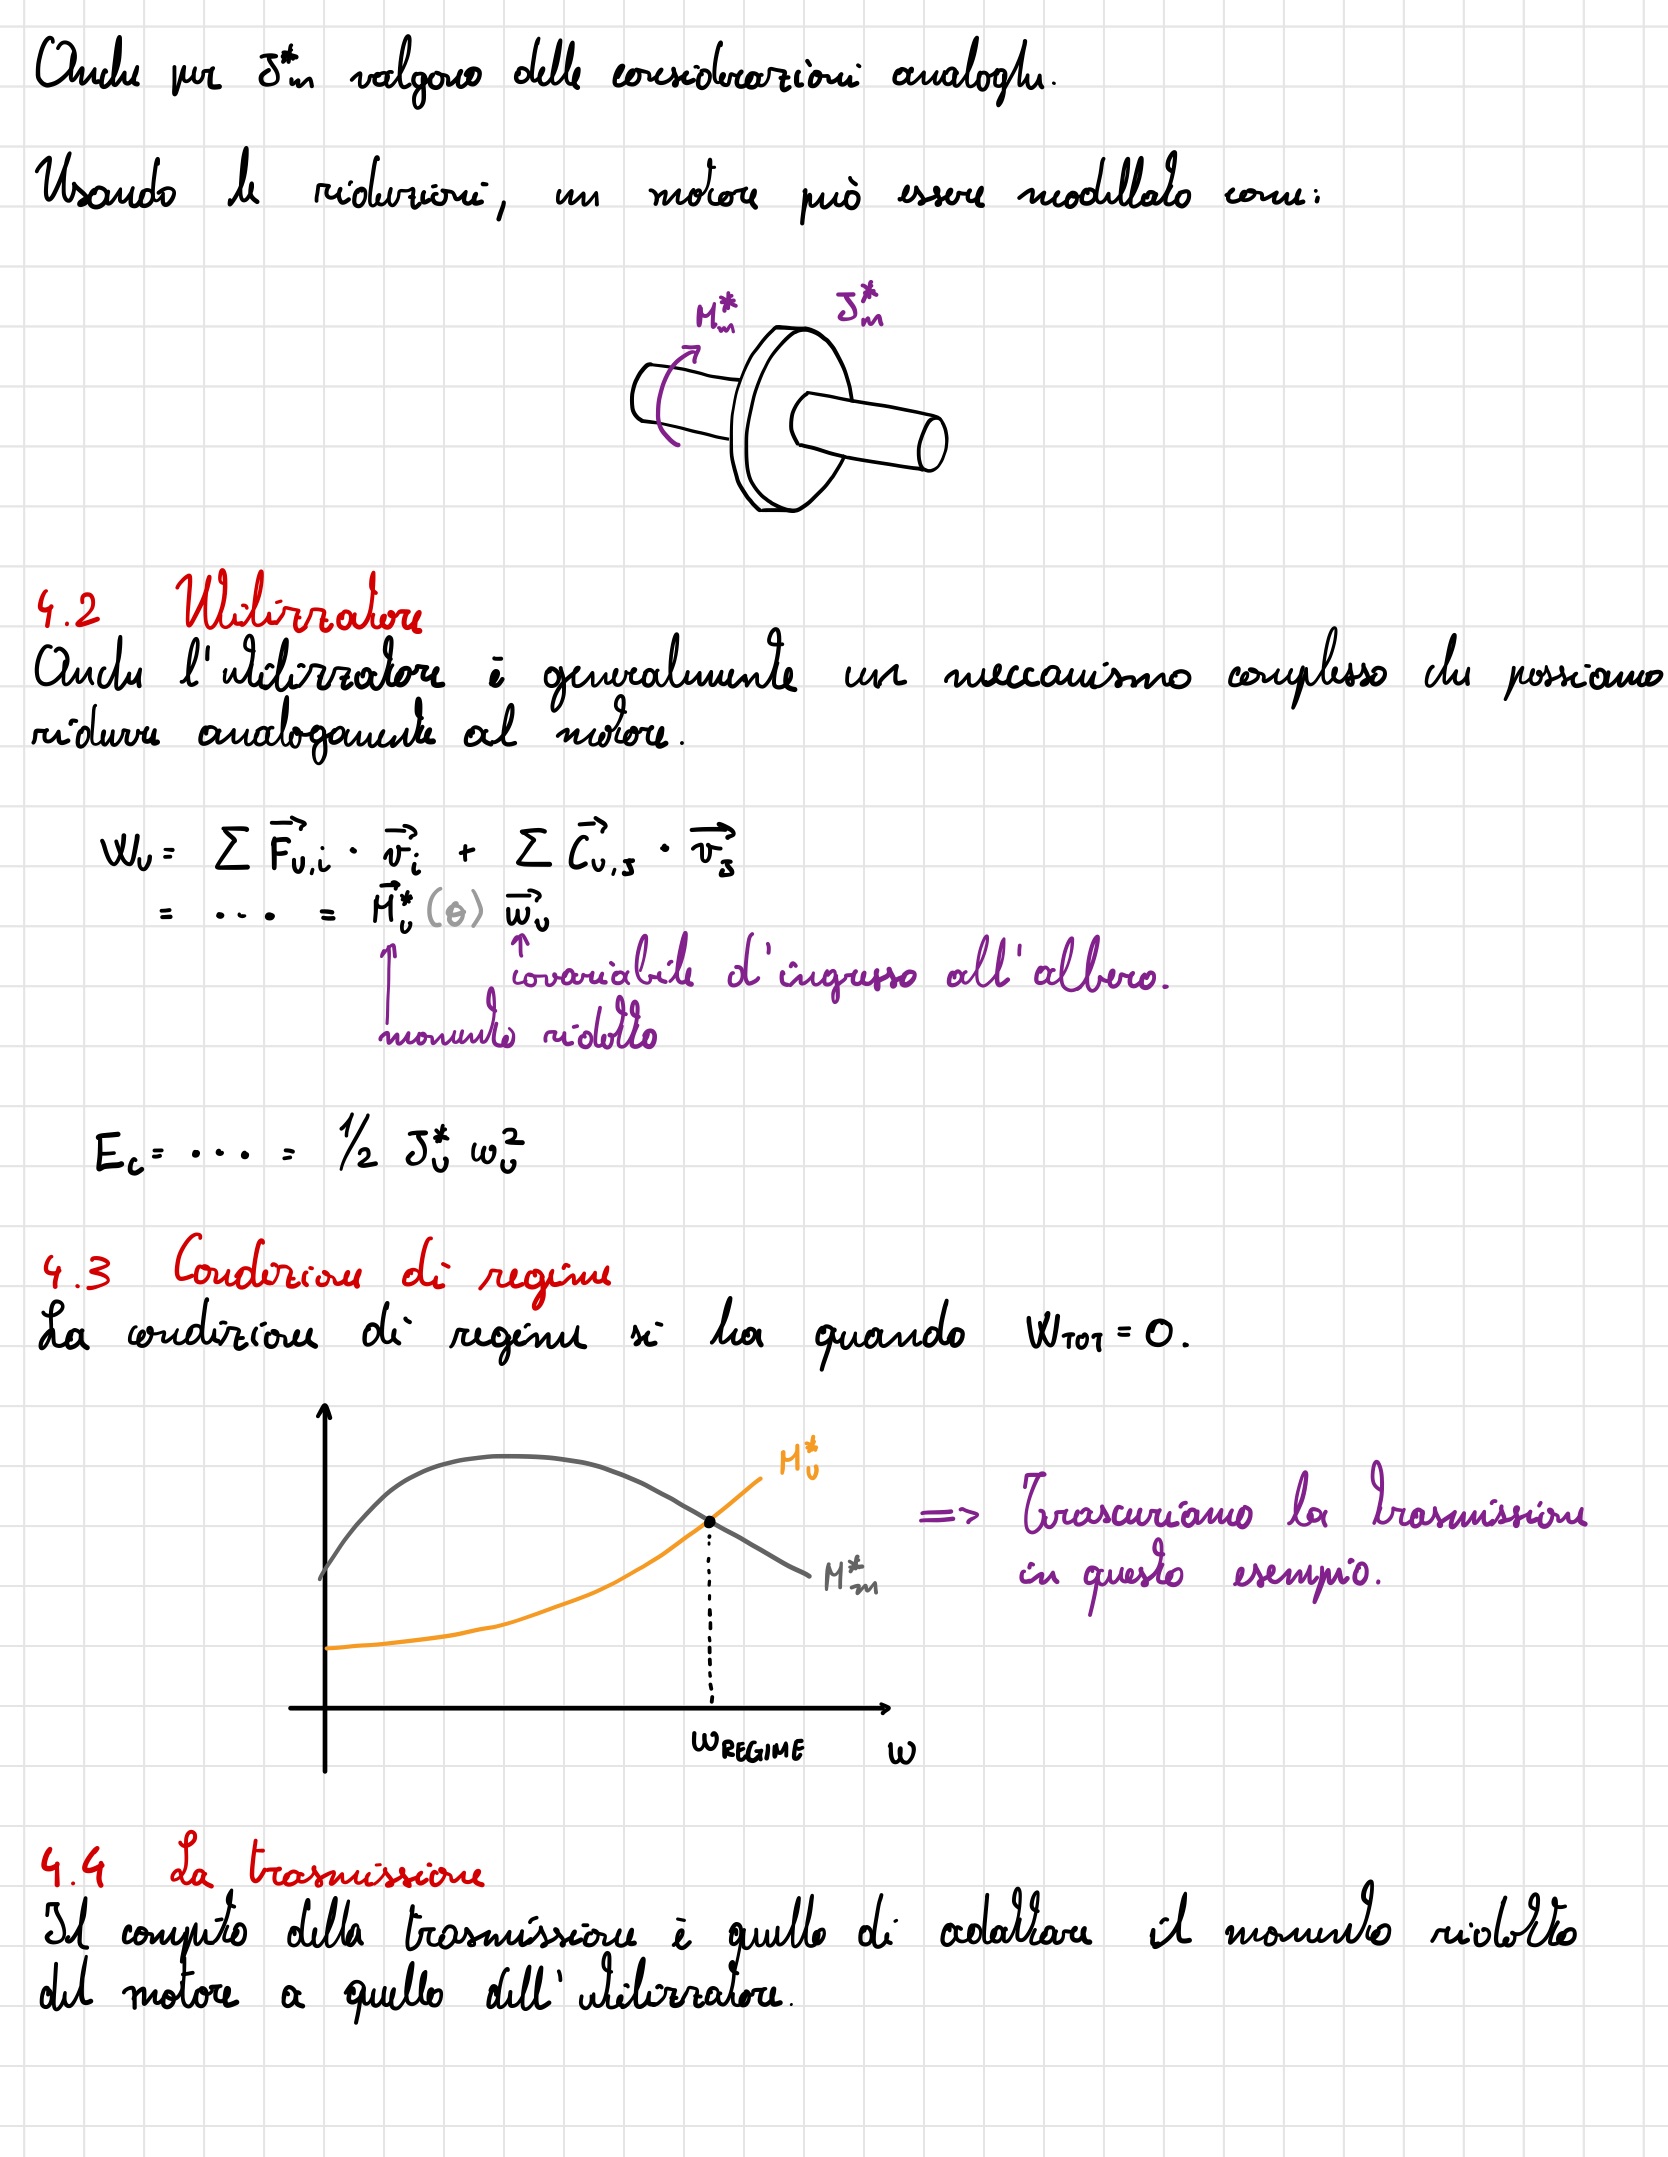 Anche per J*m valgono delle considerazioni analoghe.
Usando le riduzioni, un motore può essere modellato come:
M*m J*m
4.2 Utilizzatore
Anche l'utilizzatore è generalmente un meccanismo complesso che possiamo
ridurre analogamente al motore.
Wu = Σ F⃗u,i · v⃗i + Σ C⃗u,j · v⃗j
= ... = M⃗*u (θ) w⃗u
covariabile d'ingresso all'albero.
momento ridotto
Ec = ... = 1/2 J*u wu²
4.3 Condizione di regime
La condizione di regime si ha quando WTOT = 0.
M*u
=> Trascuriamo la trasmissione
in questo esempio.
M*m
wREGIME w
4.4 La trasmissione
Il compito della trasmissione è quello di adattare il momento ridotto
del motore a quello dell'utilizzatore.